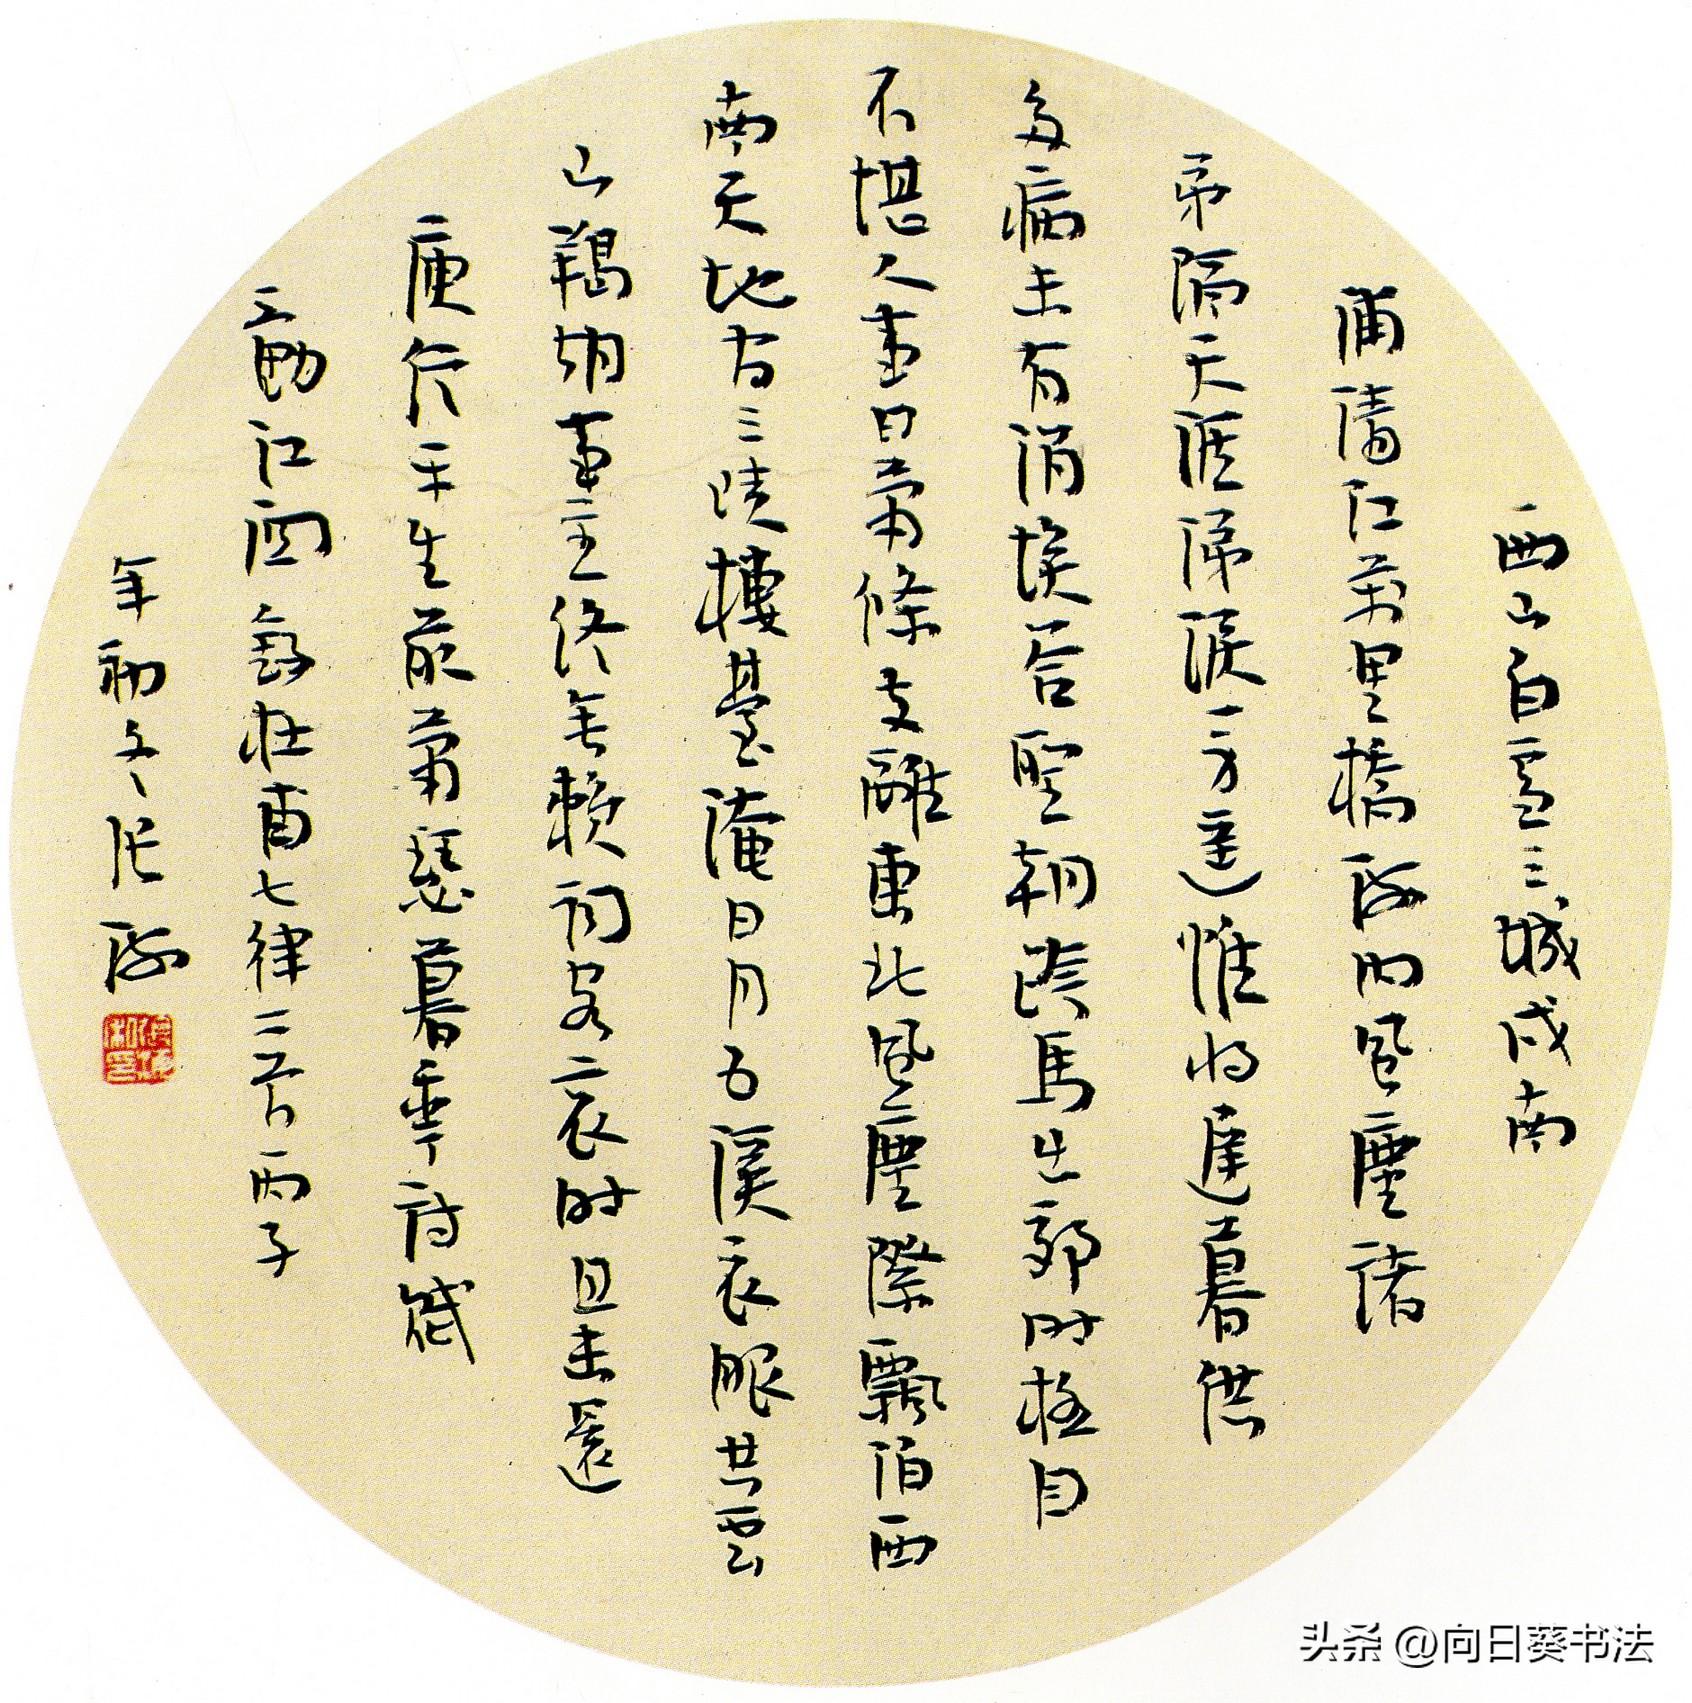 西山白雪三城戍南
浦清江萬里橋海內風塵諸
弟隔天涯涕淚一身遙惟將遲暮供
多病未有涓埃答聖朝跨馬出郊時極目
不堪人事日蕭條支離東北風塵際飄泊西
南天地間三峽樓臺淹日月五溪衣服共雲
山羯胡事主終無賴詞客哀時且未還
庾信平生最蕭瑟暮年詩賦
動江關 錄杜甫七律二首丙子
年初冬張海
头条 @向日葵书法